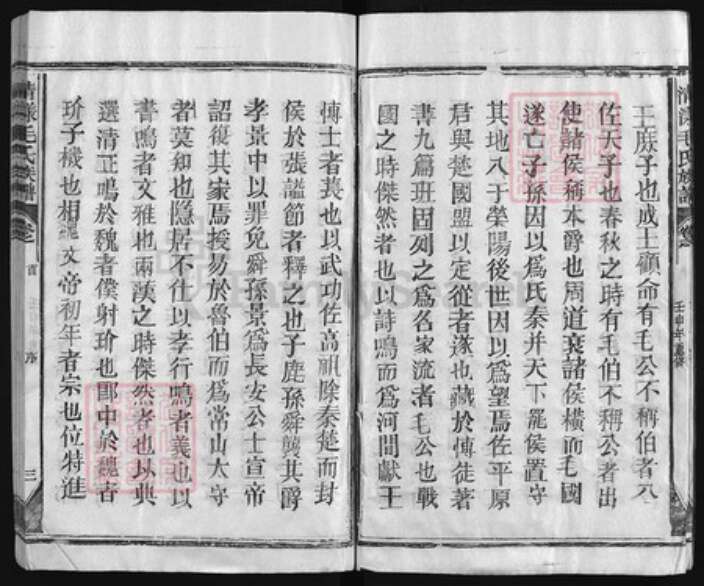 王庶子也成王顧命有毛公不稱伯者入
佐天子也春秋之時有毛伯不稱公者出
使諸侯稱本爵也周道衰諸侯橫而毛國
遂亡子孫因以爲氏秦并天下罷侯置守
其地入于滎陽後世因以爲望焉佐平原
君與楚國盟以定從者遂也藏於博徒著
書九篇班固列之爲名家流者毛公也戰
國之時傑然者也以詩鳴而爲河間獻王
清漾毛氏族譜
卷
首
序
三
博士者萇也以武功佐高祖除秦楚而封
侯於張謚節者釋之也子鹿孫舜襲其爵
孝景中以罪免舜孫景爲長安公士宣帝
詔復其家焉授易於魯伯而爲常山太守
者莫如也隐居不仕以孝行鳴者義也以
書鳴者文雅也兩漢之時傑然者也以典
選清正鳴於魏者僕射玠也郎中於魏者
玠子機也相 文帝初年者宗也位特進
FamilySearch